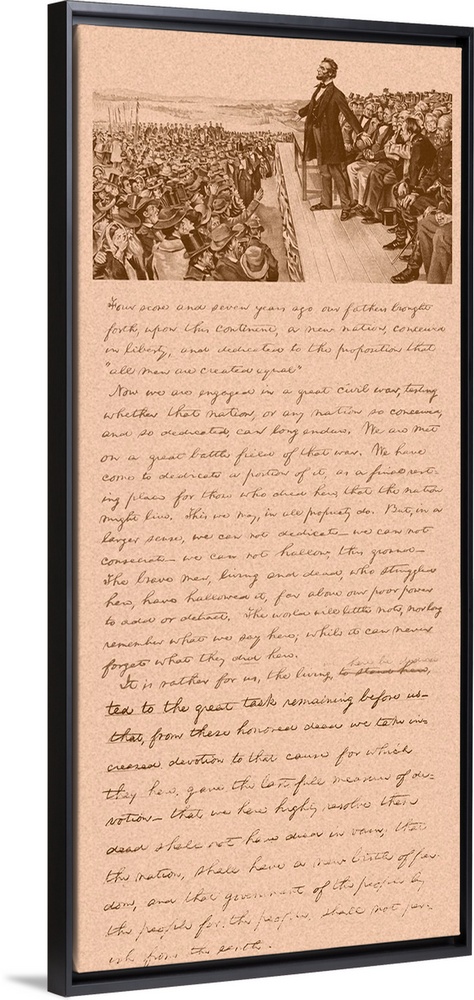 Four score and seven years ago our fathers brought
forth, upon this continent, a new nation, conceived
in liberty, and dedicated to the proposition that
"all men are created equal"
Now we are engaged in a great civil war, testing
whether that nation, or any nation so conceived,
and so dedicated, can long endure. We are met
on a great battle field of that war. We have
come to dedicate a portion of it, as a final rest-
ing place for those who died here, that the nation
might live. This we may, in all propriety do. But, in a
larger sense, we can not dedicate — we can not
consecrate — we can not hallow, this ground —
The brave men, living and dead, who struggled
here, have hallowed it, far above our poor power
to add or detract. The world will little note, nor long
remember what we say here; while it can never
forget what they did here.
It is rather for us, the living, to stand here,
ted to the great task remaining before us —
that, from these honored dead we take in-
creased devotion to that cause for which
they here, gave the last full measure of de-
votion — that we here highly resolve these
dead shall not have died in vain; that
the nation, shall have a new birth of free-
dom, and that government of the people by
the people for the people, shall not per-
ish from the earth.